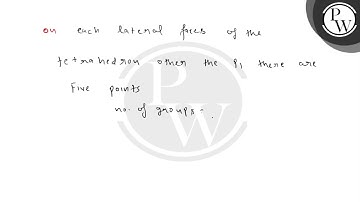 on each lateral faces of the
tetrahedron other the P1 there are
Five points
no. of groups -
P
W
P
W